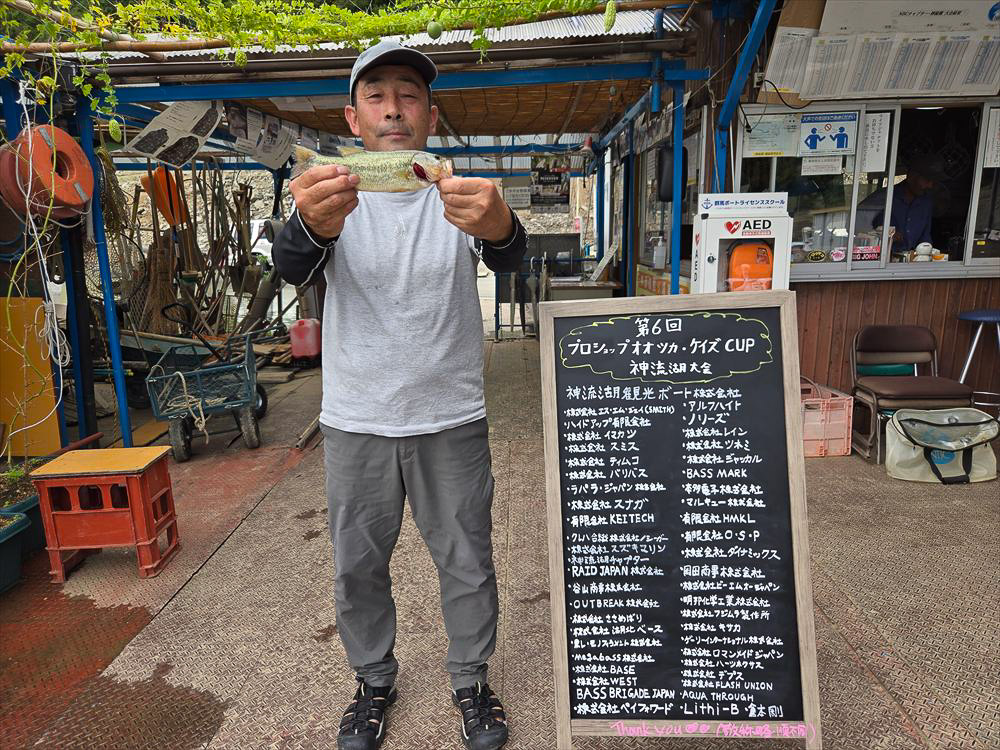 第6回
プロショップオオツカ・ケイズCUP
神流湖大会
神流湖観光ボート株式会社
・株式会社エス・エム・ジェイ(SMITH)
・ハイドアップ有限会社
・株式会社イマカツ
・株式会社スミス
・株式会社ティムコ
・株式会社バリバス
・ラパラ・ジャパン株式会社
・株式会社スナガ
・有限会社KEITECH
・クレハ合繊株式会社/シーガー
・株式会社スズキマリン
・RAID JAPAN株式会社
・谷山商事株式会社
・OUTBREAK株式会社
・株式会社ささめばり
・株式会社湖北ベース
・Megabass株式会社
・株式会社BASE
・株式会社WEST
BASS BRIGADE JAPAN
・株式会社ペイフォワード
・アルフハイト
・ノリーズ
・株式会社レイン
・株式会社ツネミ
・株式会社ジャッカル
・BASS MARK
・本多電子株式会社
・マルキュー株式会社
・有限会社HMKL
・有限会社O・S・P
・株式会社ダイナミックス
・岡田商事株式会社
・株式会社ビーエムオージャパン
・明邦化学工業株式会社
・株式会社フジムラ製作所
・株式会社キサカ
・ゲーリーインターナショナル株式会社
・株式会社ロマンメイドジャパン
・株式会社デプス
・株式会社FLASH UNION
・AQUA THROUGH
・Lithi-B・倉本剛
Thank you (敬称略・順不同)
群馬ボートライセンススクール
AED
AED
BIG JOHN